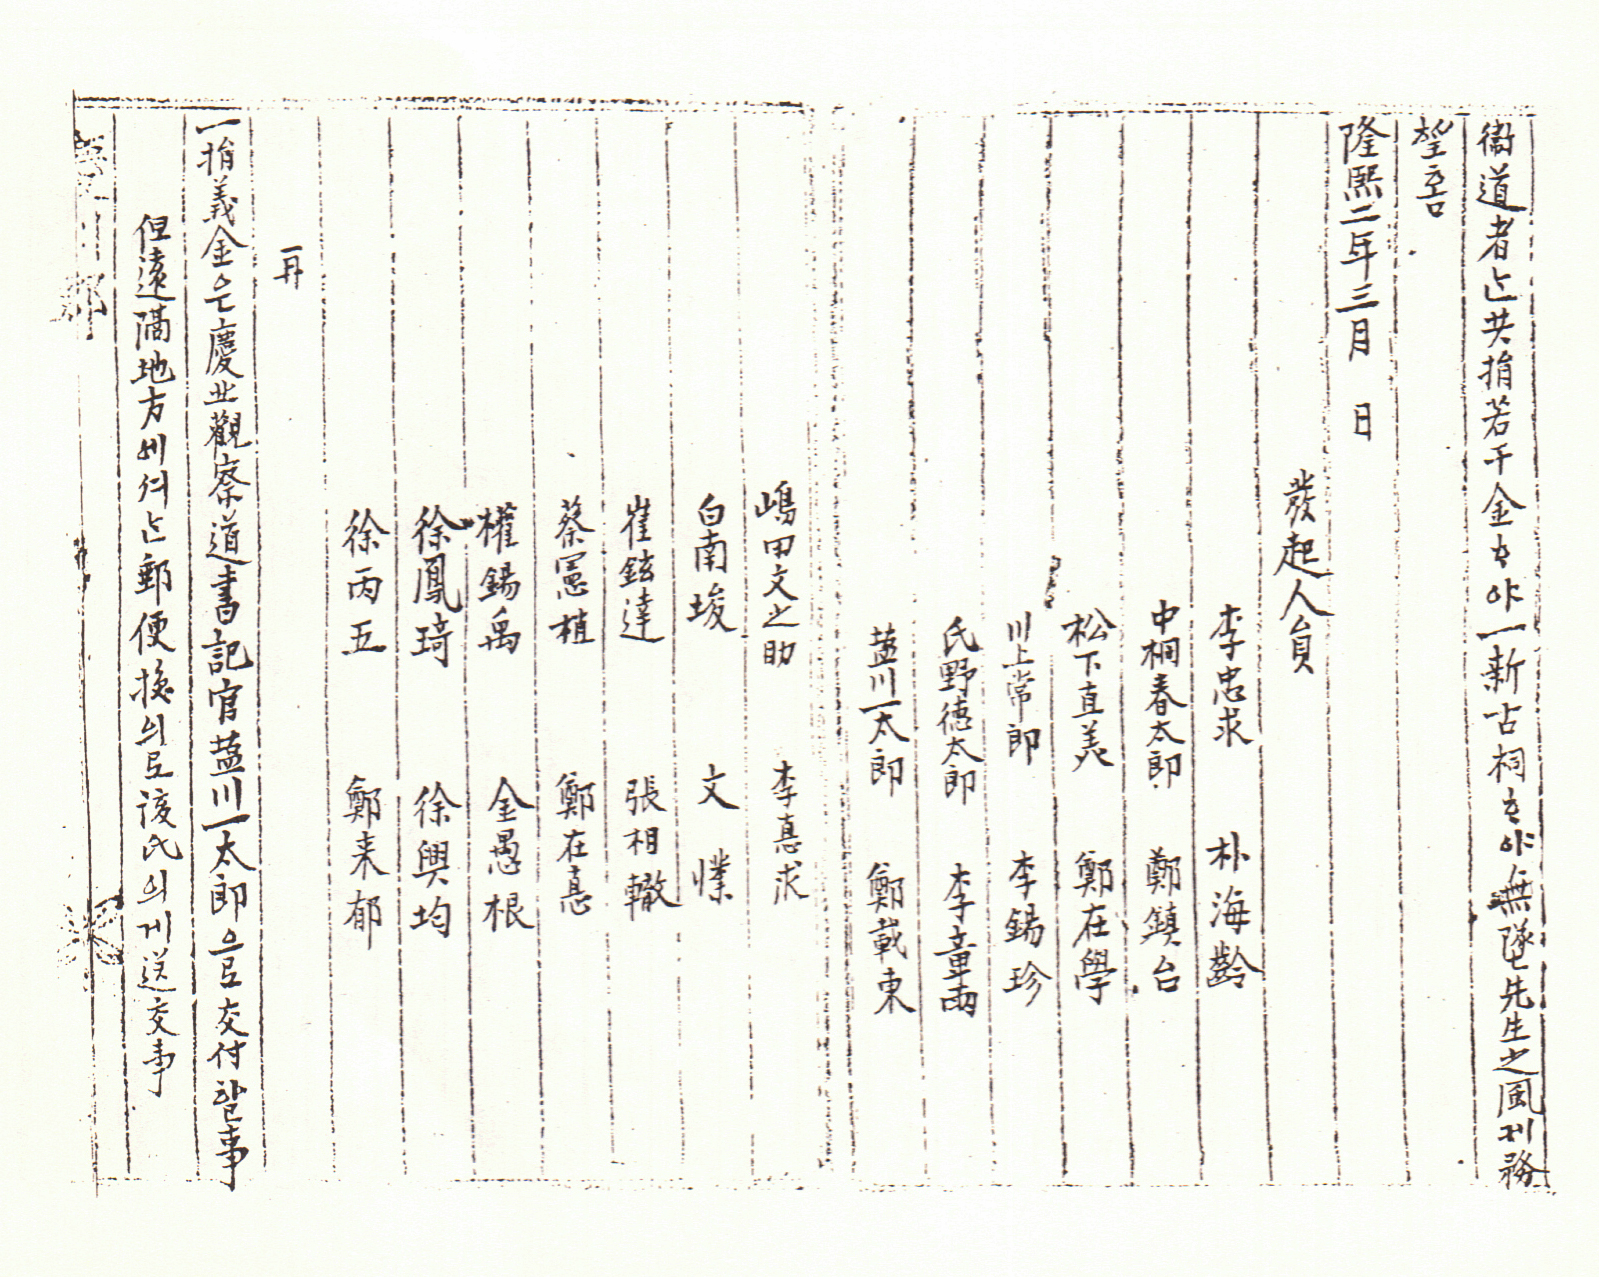 衛道者는共捐若干金하야一新古祠하야無墜先生之風케務
望흠
隆熙二年三月 日
發起人員
李忠求 朴海齡
中桐春太郎 鄭鎭台
松下直美 鄭在學
川上常郎 李錫珍
氏野德太郎 李章雨
藍川一太郎 鄭載東
嶋田文之助 李悳求
白南埈 文 㦿
崔鉉達 張相轍
蔡憲植 鄭在悳
權錫禹 金愚根
徐鳳琦 徐興均
徐丙五 鄭来郁
再
一捐義金은慶北觀察道書記官藍川一太郎으로交付할事
但遠隔地方에셔는郵便換으로該氏의게送交事